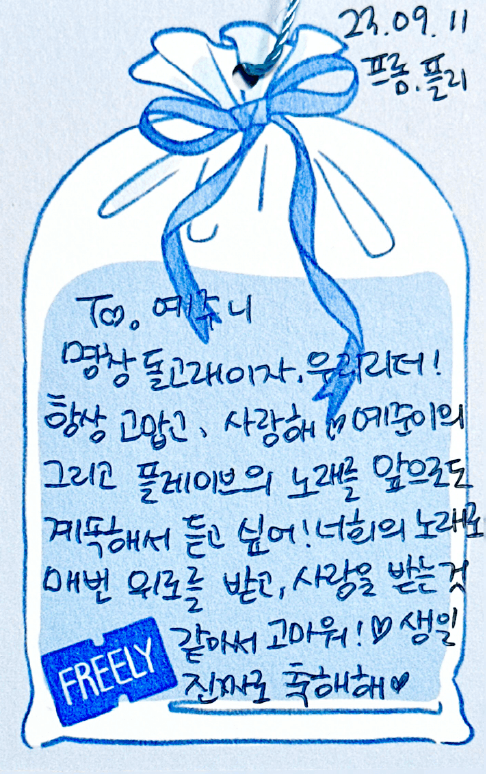 23.09.11
프롬.플리
To. 예주니
명창 돌고래이자, 우리리더!
항상 고맙고, 사랑해♡ 예준이의
그리고 플레이브의 노래를 앞으로도
계똑해서 듣고 싶어! 너희의 노래로
매번 위로를 받고, 사랑을 받는 것
같아서 고마워!♡ 생일
진짜로 축해해♥
FREELY